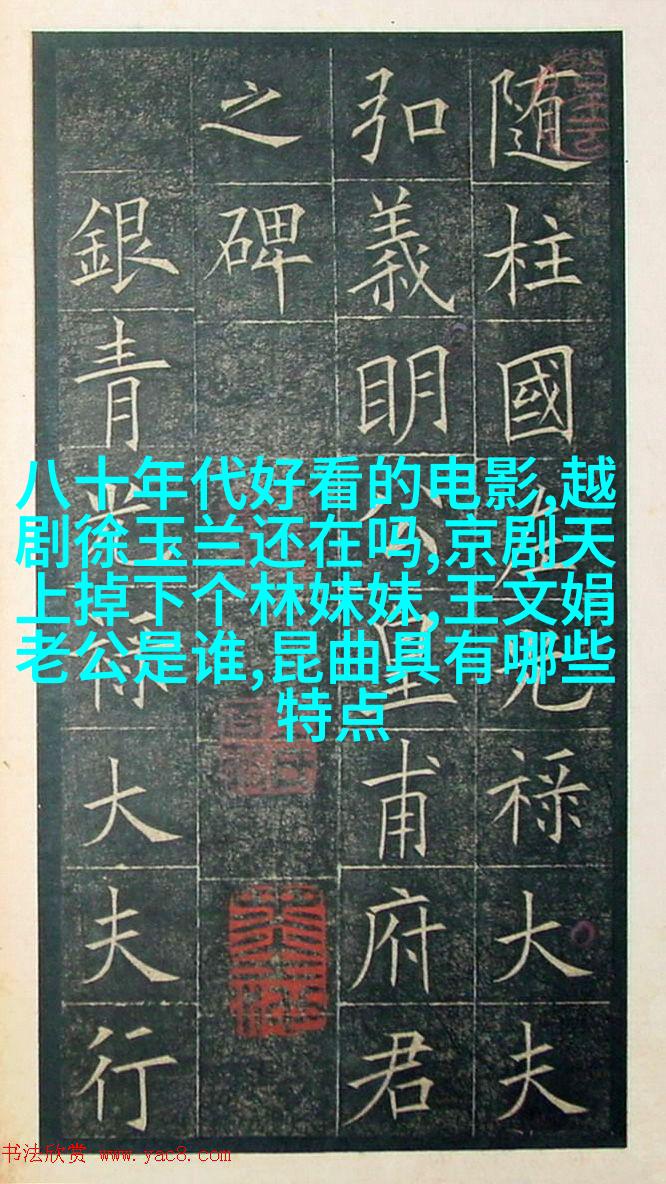 随柱國左光祿大夫
弘義明公皇甫府君
之碑
銀青光祿大夫行
八十年代好看的电影,越
剧徐玉兰还在吗,京剧天
上掉下个林妹妹,王文娟
老公是谁,昆曲具有哪些
特点
书法欣赏 www.yac8.com